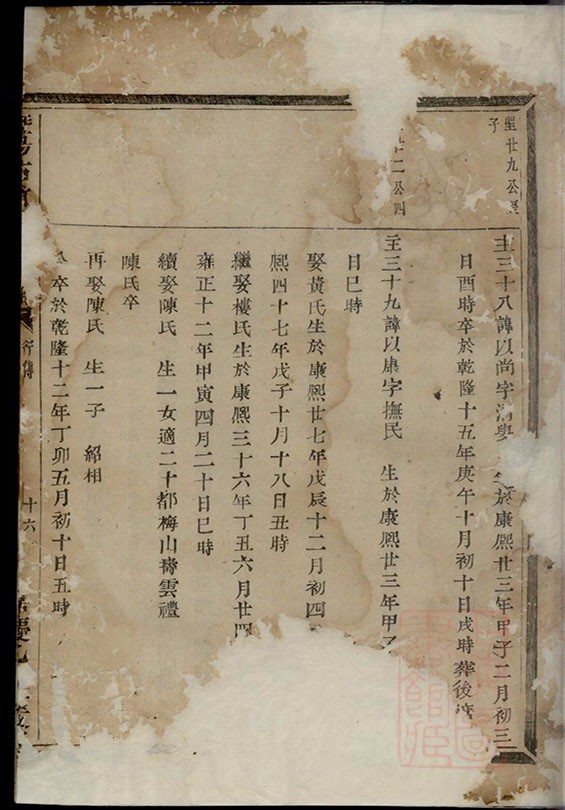 聖廿九公
子
二公四
圭三十八諱以尚字 於康熙廿三年甲子二月初三
日酉時卒於乾隆十五年庚午十月初十日戌時葬後
圭三十九諱以康字撫民 生於康熙廿三年甲子
日巳時
娶黃氏生於康熙廿七年戊辰十二月初四
熙四十七年戊子十月十八日丑時
繼娶樓氏生於康熙三十六年丁丑六月廿四
雍正十二年甲寅四月二十日巳時
續娶陳氏 生一女適二十都梅山壽雲禮
陳氏卒
再娶陳氏 生一子 紹相
公卒於乾隆十二年丁卯五月初十日丑時
行傳
十六